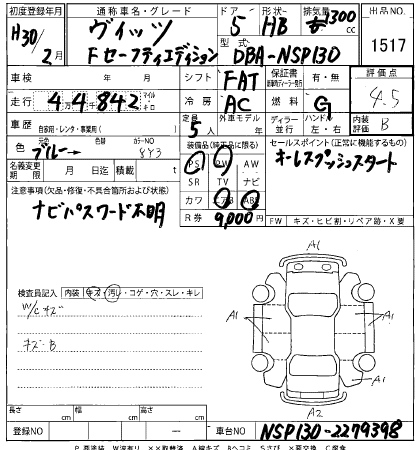 初度登録年月 通称車名・グレード ドア 形状 排気量 出品NO.
H30/2月 ヴィッツ 5 HB 1300 cc
Fセーフティエディション 型式 DBA-NSP130 1517
車検 年 月 シフト FAT 保証書 有・無 評価点
走行 44842 マイル キロ 冷房 AC 燃料 G 4.5
車歴 自家用・レンタ・事業用( ) 定員 5人 外車モデル 年 ディーラー 並行 ハンドル 左・右 内装評価 B
色 ブルー 色替 カラーNO 8Y3 装備品(純正品に限る) セールスポイント(正常に機能するもの)
名義変更期限 月 日迄 積載 t PS PW AW キーレスプッシュスタート
注意事項(欠品・修復・不具合箇所および状態) SR TV ナビ
ナビパスワード不明 カワ エアB ABS
R券 9,000円 FW キズ・ヒビ割・リペア跡・X要
検査員記入 内装 キズ・汚レ・コゲ・穴・スレ・キレ
W/Cキズ
キズ・B
A1
A1 A1
A1
A2
長さ cm 幅 cm 高さ cm
登録NO ― 車台NO NSP130-2279398
P.要塗装 W.波有り ××取替済 A.線キズ B.ヘコミ S.さび X.要交換 C.腐食